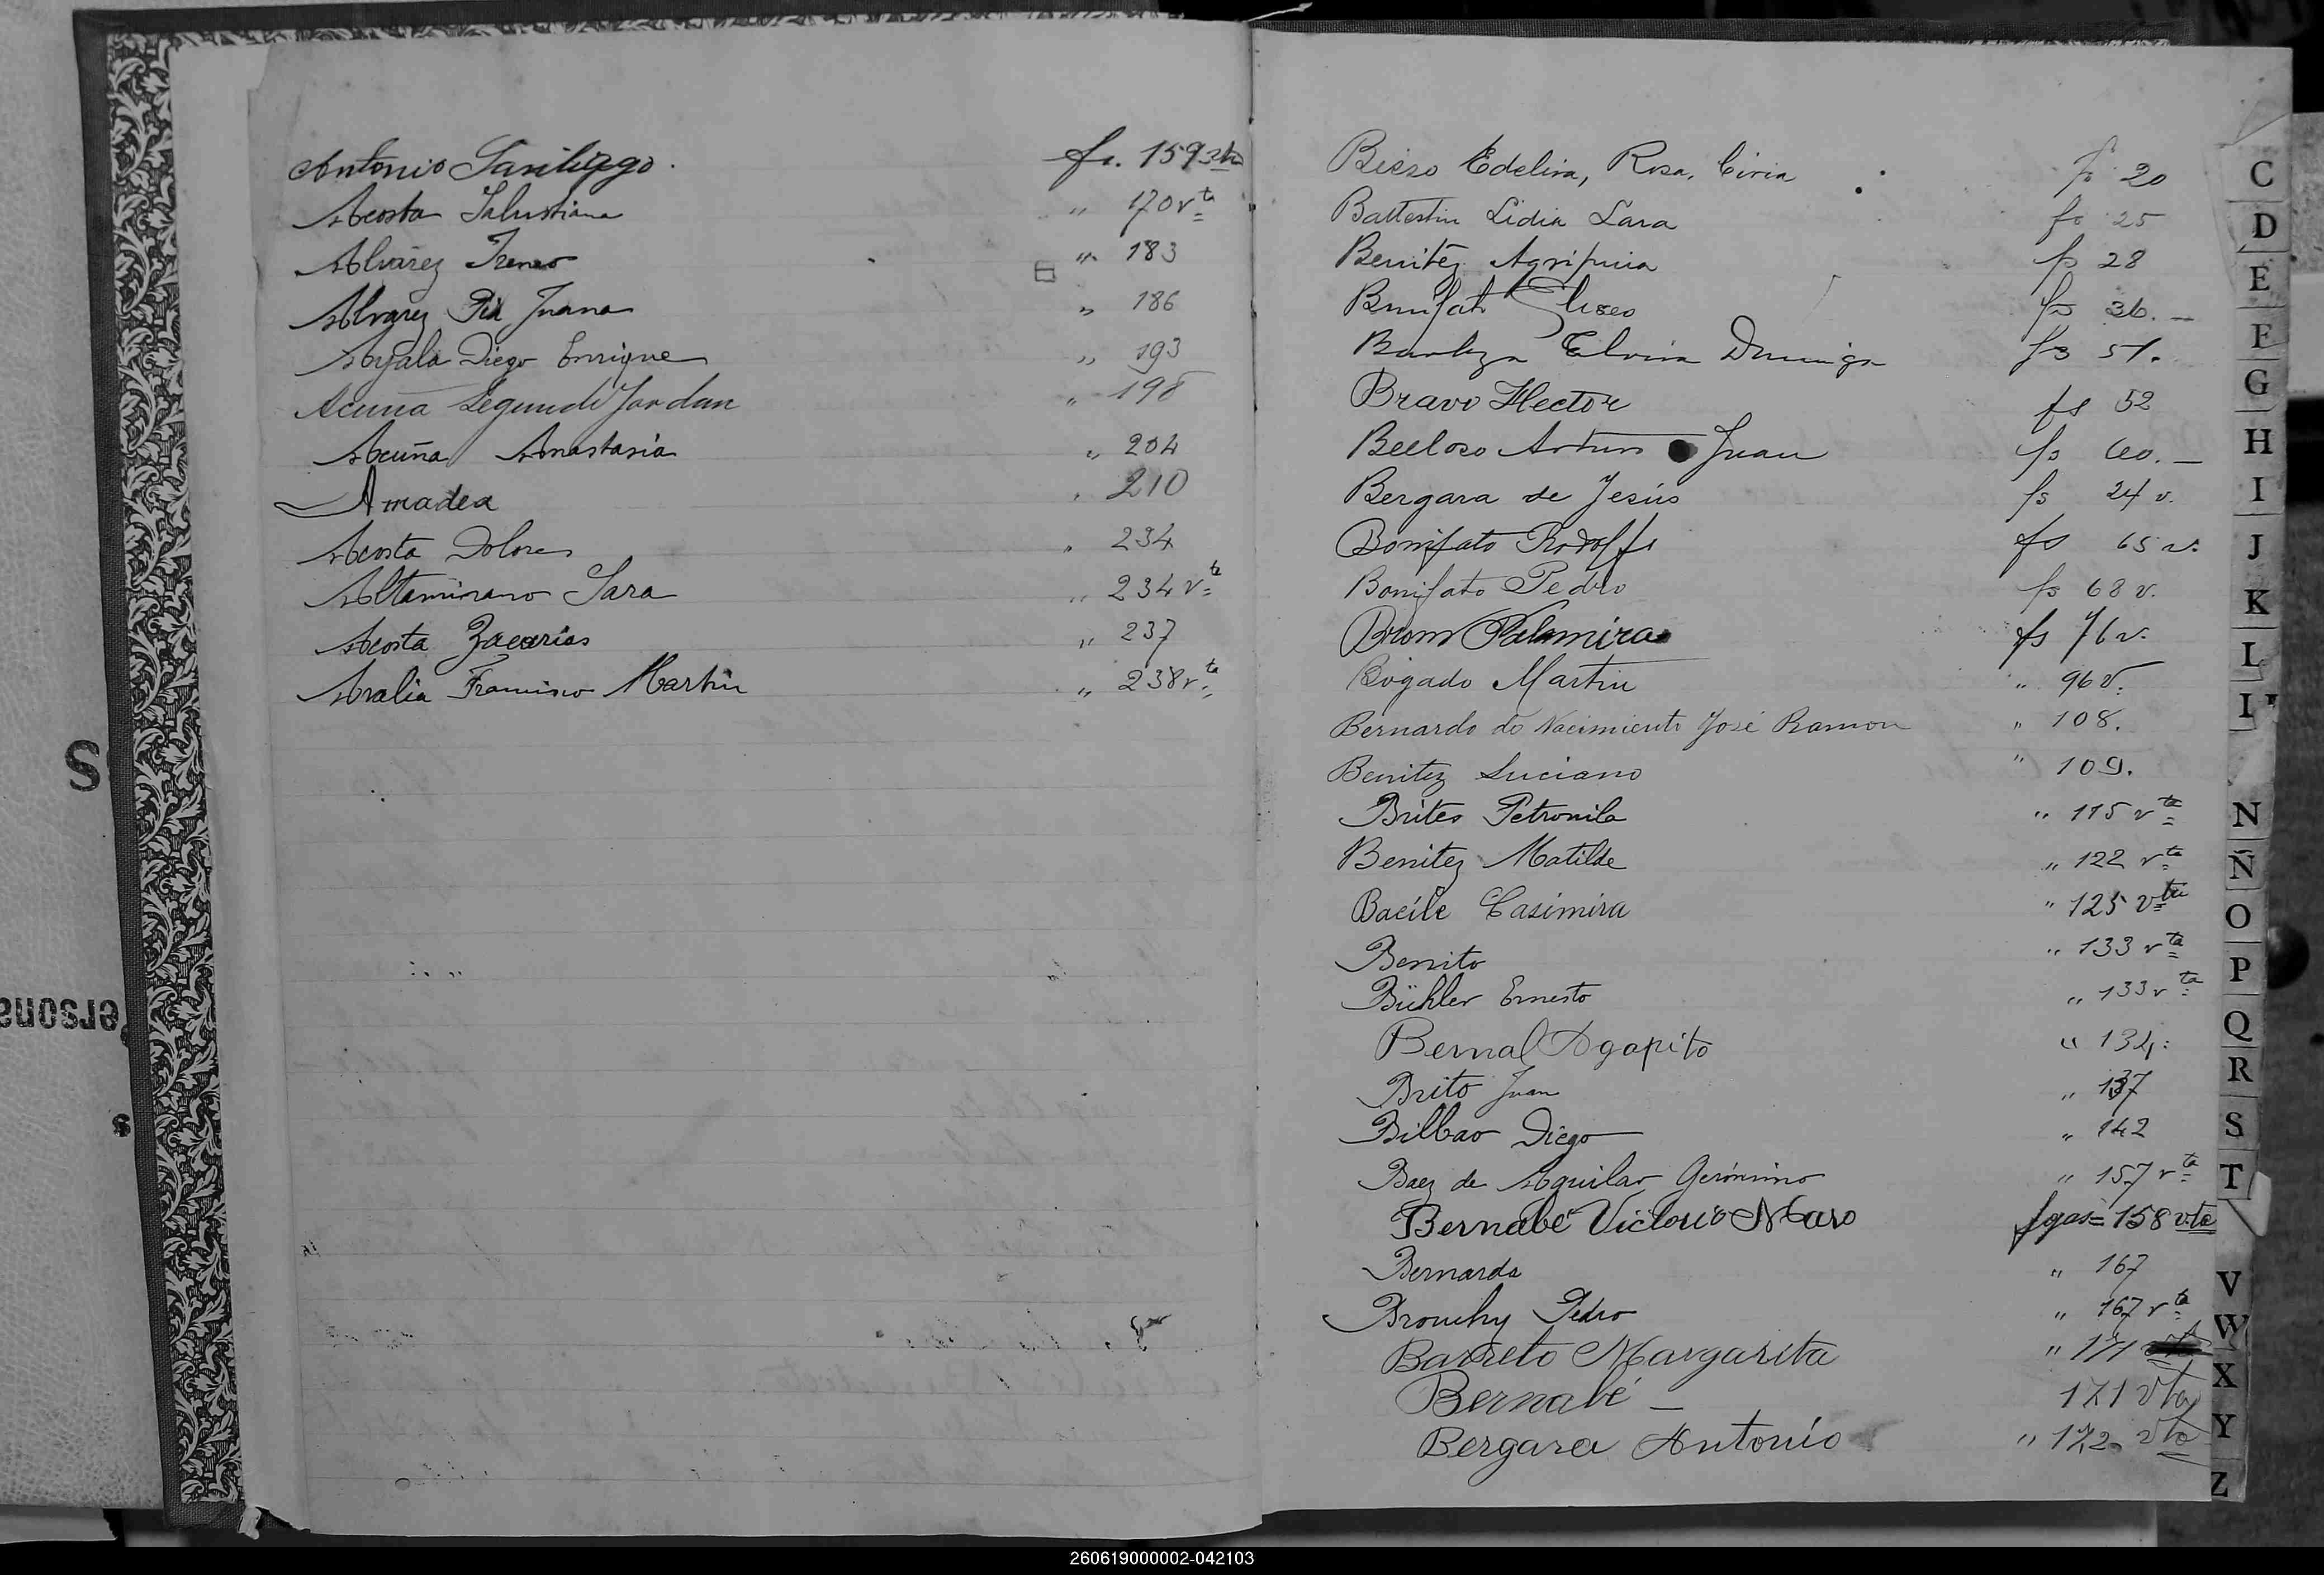 Antonio Santiago. fs. 159 vta
Acosta Salustiana " 170 vta
Alvarez Ireneo " 183
Alvarez Pia Juana " 186
Ayala Diego Enrique " 193
Acuña Segundo Jordan " 198
Acuña Anastasia " 204
Amadea " 210
Acosta Dolores " 234
Altamirano Sara " 234 vta
Acosta Zacarias " 237
Aralia Francisco Martin " 238 vta
Edelira, Rosa, Ciria fs 20
Battestin Lidia Lara fs 25
Benitez Agripina fs 28
Bonifato Eliseo fs 36.
Elvira Dominga fs 51.
Bravo Hector fs 52
Belloso Arturo Juan fs 60.
Bergara de Jesús fs 24 v.
Bonifato Rodolfo fs 65 v.
Bonifato Pedro fs 68 v.
Brom Palmira fs 76 v.
Bogado Martin " 96 v.
Bernardo do Nacimiento José Ramon " 108.
Benitez Luciano " 109.
Brites Petronila " 115 vta
Benitez Matilde " 122 vta
Bacile Casimira " 125 vta
Benito " 133 vta
Bühler Ernesto " 133 vta
Bernal Agapito " 134.
Brito Juan " 137
Bilbao Diego " 142
Baez de Aguilar Gerónimo " 157 vta
Bernabé Victorio Maro fgas= 158 vta
Bernarda " 167
Brouchy Pedro " 167 vta
Barreto Margarita " 171
Bernabé 171 vta
Bergara Antonio " 172 vta
C
D
E
F
G
H
I
J
K
L
N
Ñ
O
P
Q
R
S
T
V
W
X
Y
Z
S
ersona
s
260619000002-042103